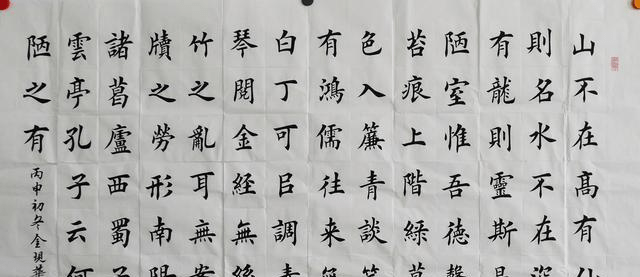 山不在高有仙
則名水不在深
有龍則靈斯是
陋室惟吾德馨
苔痕上階綠草
色入簾青談笑
有鴻儒往來無
白丁可㠯調素
琴閱金經無絲
竹之亂耳無案
牘之勞形南陽
諸葛廬西蜀子
雲亭孔子云何
陋之有
丙申初冬金現華